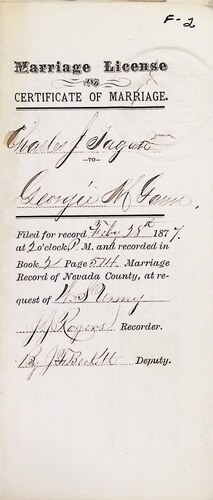 F-2
Marriage License
OR
CERTIFICATE OF MARRIAGE.
Charles J
—TO—
Georgie M
Filed for record Feby 28th 1877,
at 2 o'clock, P.M. and recorded in
Book 2 Page 514 Marriage
Record of Nevada County, at re-
quest of
J J Rogers Recorder.
By J F Deputy.